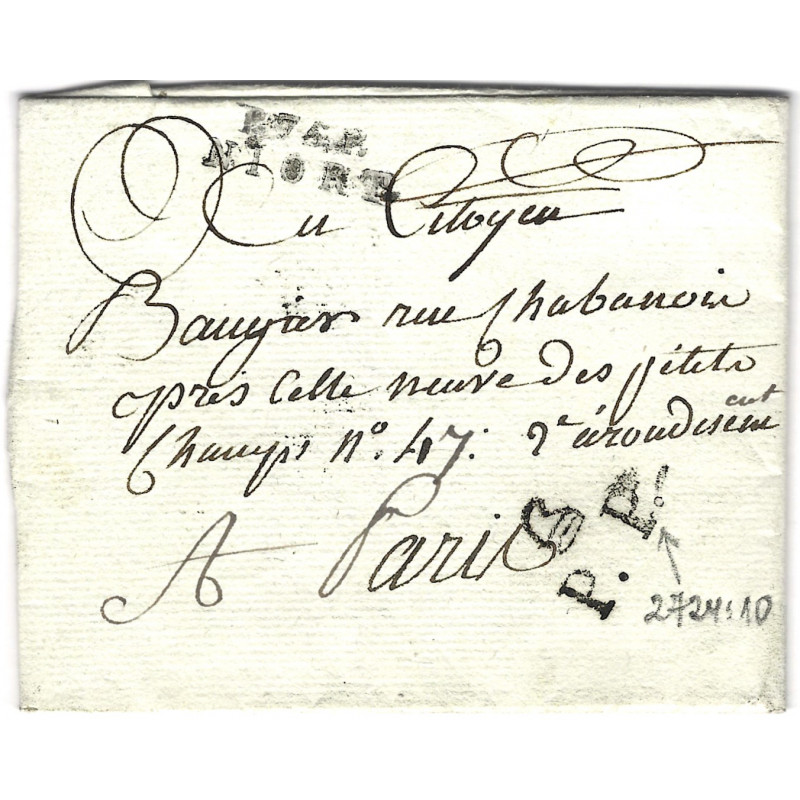 P.74.P.
NIORT.
Au Citoyen
Baugier rue Chabanoin
près celle neuve des petits
Champs n° 47. 2e aroudisem
ent
A Paris
P. P.
2724:10